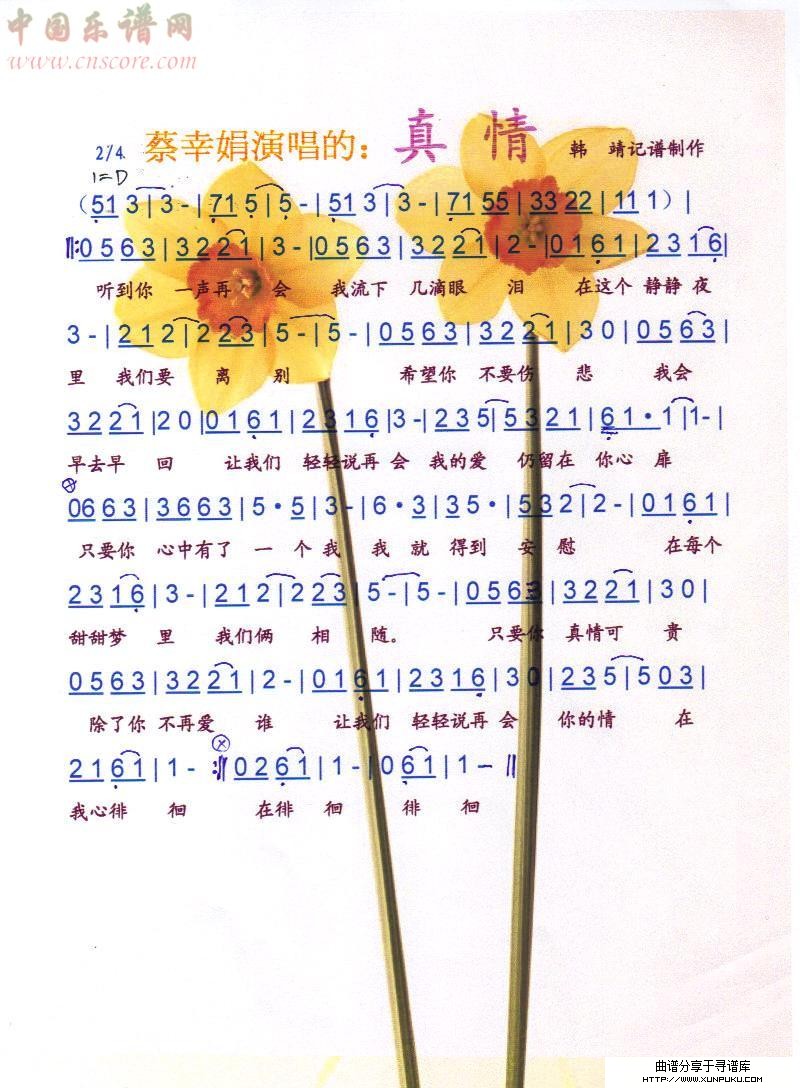 中国乐谱网
www.cnscore.com
2/4 蔡幸娟演唱的: 真 情 韩 靖记谱制作
1=D
(51 3|3-|71 5|5-|51 3|3-|71 55|33 22|11 1)|
‖:0 5 6 3|3 2 2 1|3-|0 5 6 3|3 2 2 1|2-|0 1 6 1|2 3 1 6|
听到你 一声再 会 我流下 几滴眼 泪 在这个 静静 夜
3-|2 1 2|2 2 3|5-|5-|0 5 6 3|3 2 2 1|3 0|0 5 6 3|
里 我们要 离 别 希望你 不要伤 悲 我会
3 2 2 1|2 0|0 1 6 1|2 3 1 6|3-|2 3 5|5 3 2 1|6 1·1|1-|
早去早 回 让我们 轻轻说再 会 我的爱 仍留在 你心 扉
0 6 6 3|3 6 6 3|5·5|3-|6·3|3 5·|5 3 2|2-|0 1 6 1|
只要你 心中有了 一 个 我 我 就 得到 安 慰 在每个
2 3 1 6|3-|2 1 2|2 2 3|5-|5-|0 5 6 3|3 2 2 1|3 0|
甜甜梦 里 我们俩 相 随。 只要你 真情可 贵
0 5 6 3|3 2 2 1|2-|0 1 6 1|2 3 1 6|3 0|2 3 5|5 0 3|
除了你 不再爱 谁 让我们 轻轻说再 会 你的情 在
2 1 6 1|1-:‖0 2 6 1|1-|0 6 1|1-‖
我心徘 徊 在徘 徊 徘 徊
曲谱分享于寻谱库
HTTP://WWW.XUNPUKU.COM